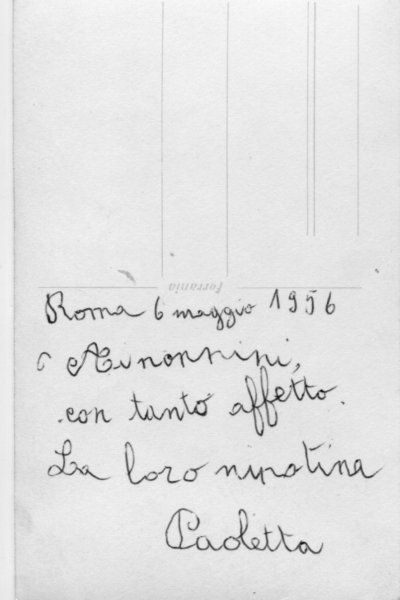 Ferrania
Roma 6 maggio 1956
Ai nonnini,
con tanto affetto.
La loro nipotina
Paoletta